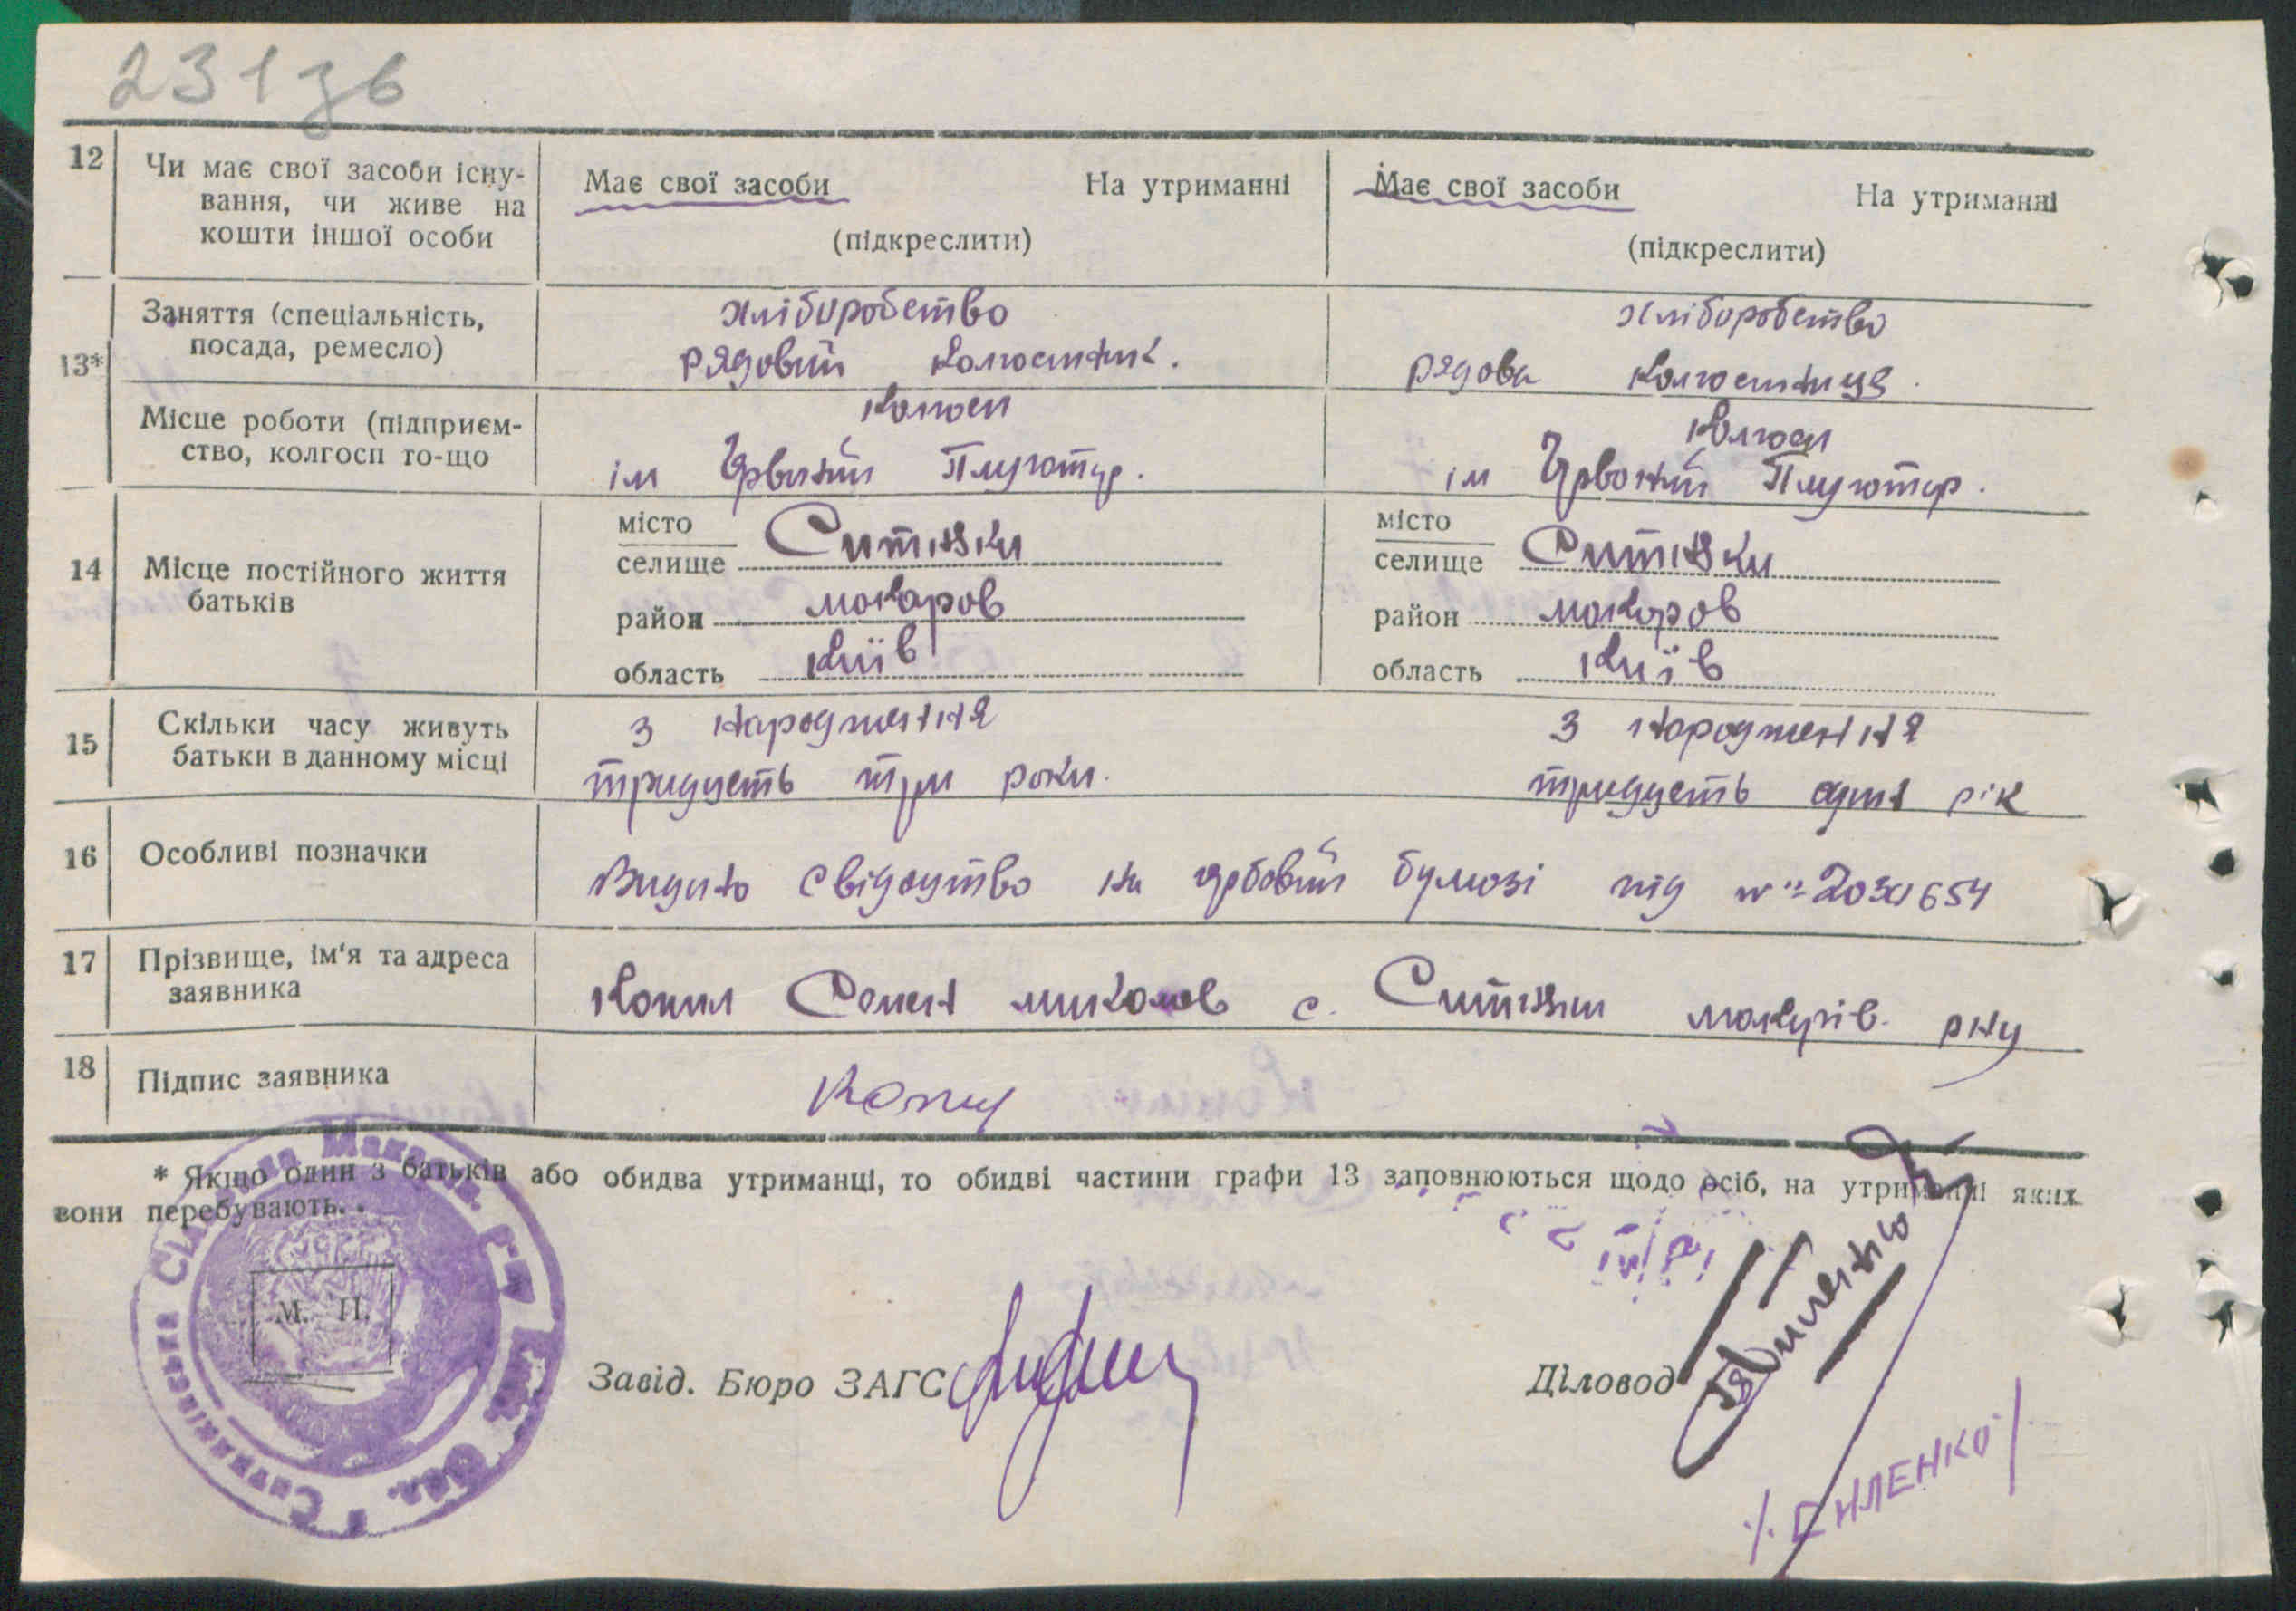 231зв
12 Чи має свої засоби існу- Має свої засоби На утриманні Має свої засоби На утриманні
вання, чи живе на
кошти іншої особи (підкреслити) (підкреслити)
Заняття (спеціальність, хліборобство хліборобство
посада, ремесло) рядовий колгоспник. рядова колгоспниця.
13*
Місце роботи (підприєм- колгосп колгосп
ство, колгосп то-що ім Чрвоний Плугатар. ім Чрвоний Плугатар.
місто місто
14 Місце постійного життя селище Ситняки селище Ситняки
батьків район Макаров район Макаров
область Київ область Київ
15 Скільки часу живуть з народження з народження
батьки в данному місці тридцять три роки. тридцять один рік
16 Особливі позначки Видано свідоцтво на грбовий бумазі під №
17 Прізвище, ім'я та адреса
заявника Копил Семен Миколов с. Ситняки Макарів. рну
18 Підпис заявника Копил
* Якщо один з батьків або обидва утриманці, то обидві частини графи 13 заповнюються щодо осіб, на утриманні яких
вони перебувають.
М. П.
Завід. Бюро ЗАГС
Діловод